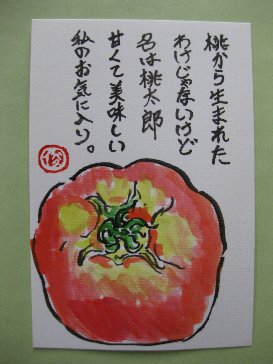 桃から生まれた
わけじゃないけど
名は桃太郎
甘くて美味しい
私のお気に入り。